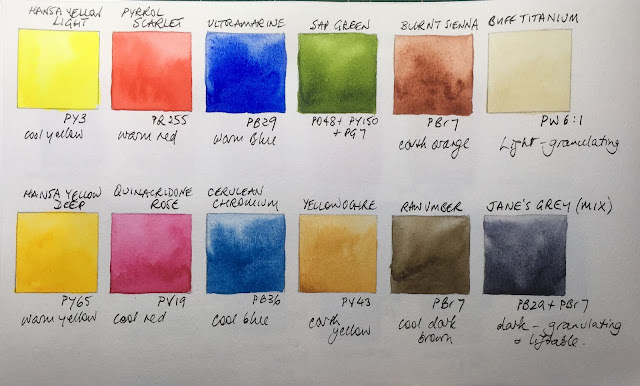 HANSA YELLOW
LIGHT
PYRROL
SCARLET
ULTRAMARINE
SAP GREEN
BURNT SIENNA
BUFF TITANIUM
PY3
cool yellow
PR255
warm red
PB29
warm blue
PO48+ PY150
+ PG7
PBr7
earth orange
PW6:1
Light-granulating
HANSA YELLOW
DEEP
QUINACRIDONE
ROSE
CERULEAN
CHROMIUM
YELLOW OCHRE
RAW UMBER
JANE'S GREY (MIX)
PY65
warm yellow
PV19
cool red
PB36
cool blue
PY43
earth
yellow
PBr7
cool dark
brown
PB29 + PBr7
dark - granulating
& liftable.